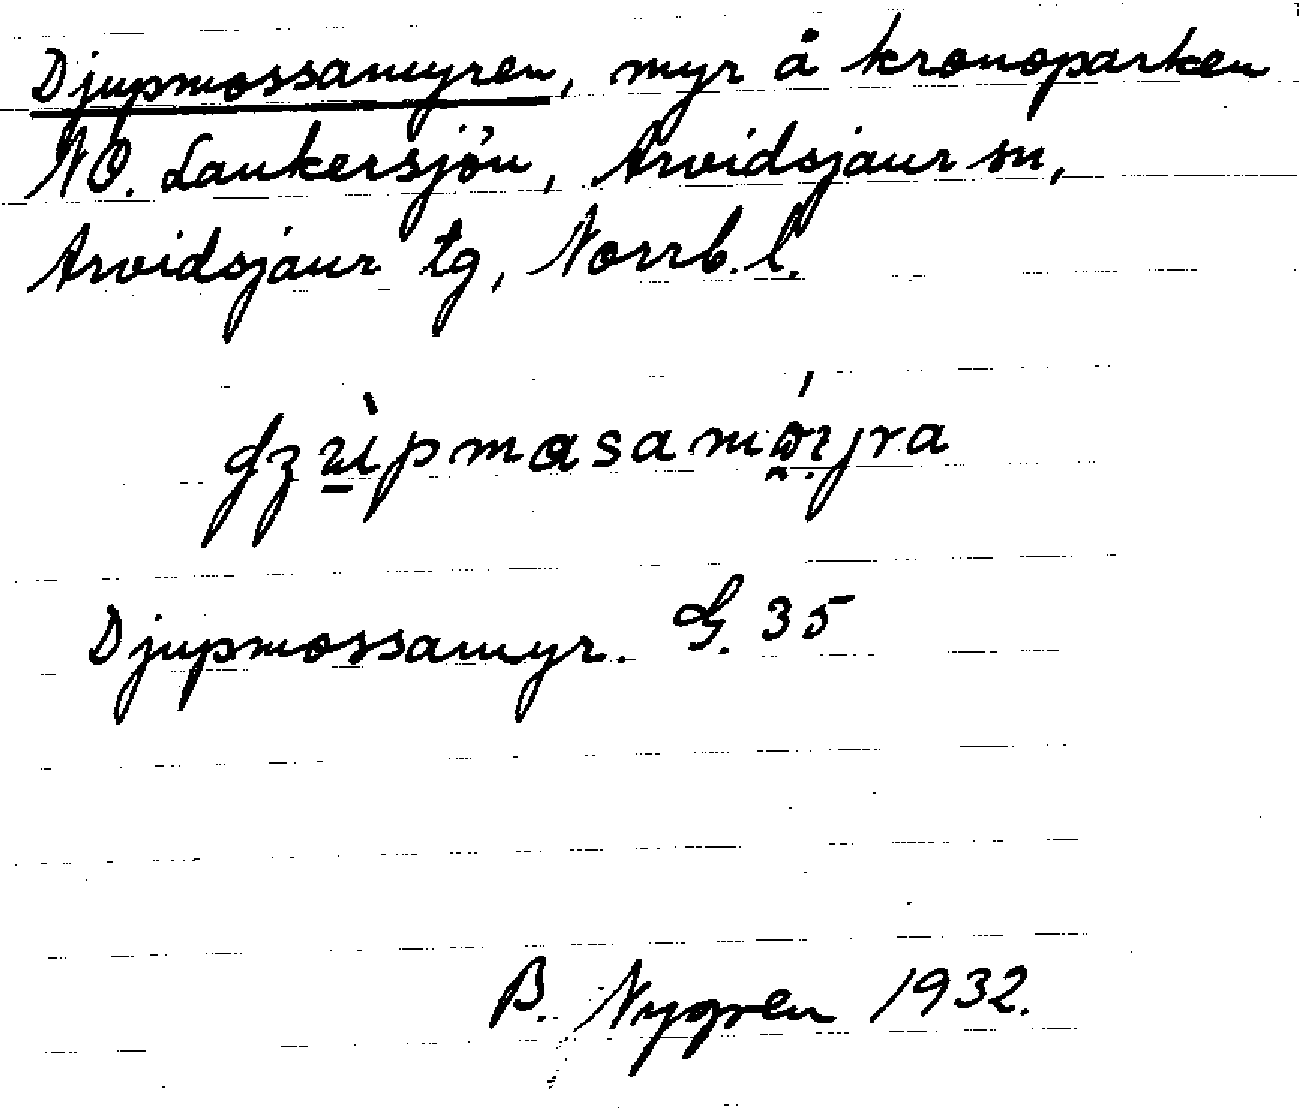 Djupmossamyren, myr å kronoparken
NO. Laukersjön, Arvidsjaur sn,
Arvidsjaur tg, Norrb. l.
Djupmossamyr. G. 35
B. Nygren 1932.